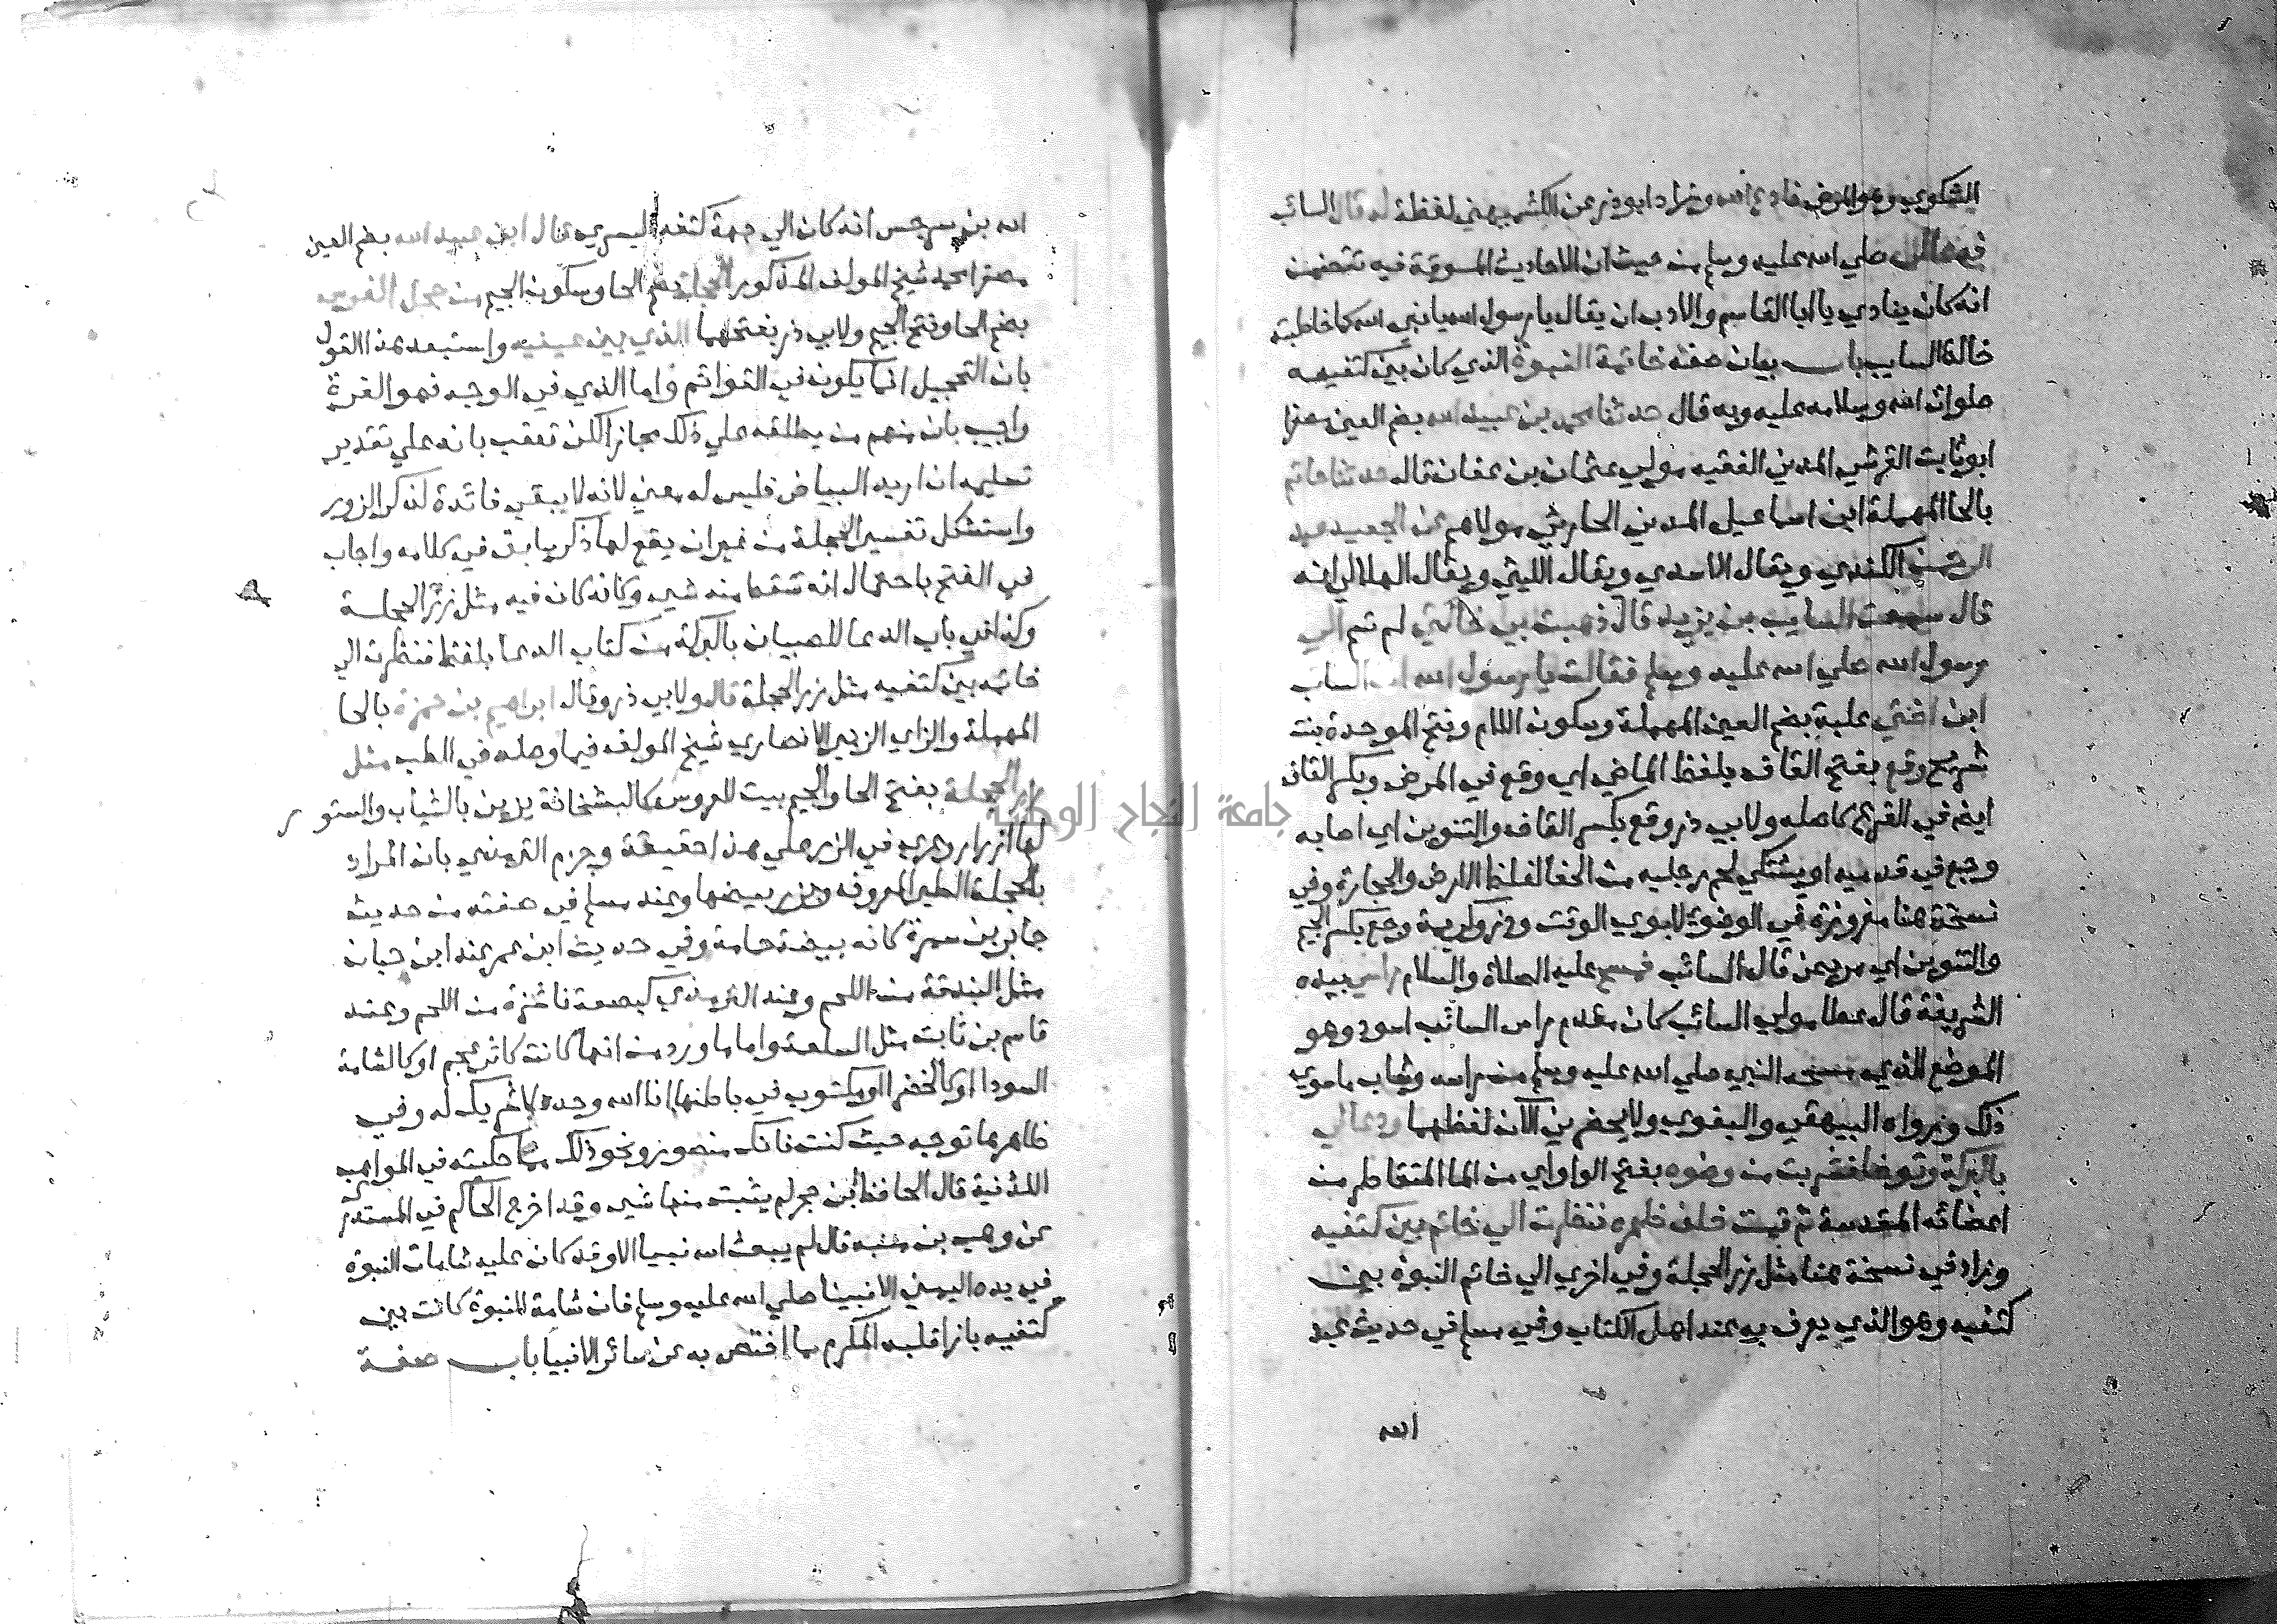 الشكوي وهو المرض فادع الله وزاد ابو ذر عن الكشميهني لفظة له قال السائب
صلي الله عليه وسلم من حيث ان الاحاديث المسوقة فيه تتضمن
انه كان ينادي يا ابا القاسم والادب ان يقال يا رسول الله يا نبي الله كما خاطبته
خالة السايب باب بيان صفة خاتمة النبوة الذي كان بين كتفيه
صلوات الله وسلامه عليه وبه قال حدثنا محمد بن عبيد الله بضم العين مصغرا
ابو ثابت القرشي المدني الفقيه مولي عثمان بن عفان قال حدثنا حاتم
بالحا المهملة ابن اسماعيل المدني الحارثي مولاهم عن الجعيد عبد
الرحمن الكندي ويقال الاسدي ويقال الليثي ويقال الهلالي انه
قال سمعت السايب بن يزيد قال ذهبت بي خالتي لم تسم الي
رسول الله صلي الله عليه وسلم فقالت يا رسول الله ان السايب
ابن اختي علبة بضم العين المهملة وسكون اللام وفتح الموحدة بنت
شريح وقع بفتح القاف بلفظ الماضي اي وقع في المرض وبكسر القاف
ايض في الفرع كاصله ولابي ذر وقع بكسر القاف والتنوين اي اصابه
وجع في قدميه او يشتكي لحم رجليه من الحفا لغلظ الارض والحجارة وفي
نسخة هنا مغروزة في الوضوء لابوي الوقت وذر وكريمة وجع بكسر الجيم
والتنوين اي مريض قال السائب فمسح عليه الصلاة والسلام راسي بيده
الشريفة قال عطا مولي السائب كان مقدم راس السائب اسود وهو
الموضع الذي مسحه النبي صلي الله عليه وسلم من راسه وشاب ماسوي
ذلك ورواه البيهقي والبغوي ولا يحضرني الآن لفظهما ودعا لي
بالبركة وتوضا فشربت من وضوه بفتح الواو اي من الما المتقاطر من
اعضائه المقدسة ثم قمت خلف ظهره فنظرت الي خاتم بين كتفيه
وزاد في نسخة هنا مثل زر الحجلة وفي اخري الي خاتم النبوة بين
كتفيه وهو الذي يعرف به عند اهل الكتاب وفي مسلم في حديث عبد
الله
الله بن سرجس انه كان الي جهة كتفه اليسري قال ابن عبيد الله بضم العين
مصغرا محمد شيخ المولف المذكور الحجلة بضم الحا وسكون الجيم من حجل الفرس
بضم الحا وفتح الجيم ولابي ذر بفتحهما الذي بين عينيه واستبعد هذا القول
بان التحجيل انما يكون في القوائم واما الذي في الوجه فهو الغرة
واجيب بان منهم من يطلقه علي ذلك مجازا لكن تعقب بانه علي تقدير
تسليمه ان اريد البياض فليس له معني لانه لا يبقي فائدة لذكر الزر
واستشكل تفسير الحجلة من غير ان يقع لها ذكر سابق في كلامه واجاب
في الفتح باحتمال انه سقط منه شي وكانه كان فيه مثل زر الحجلة
وكذا في باب الدعا للصبيان بالبركة من كتاب الدعا بلفظ فنظرت الي
خاتمه بين كتفيه مثل زر الحجلة قال ولابي ذر وقال ابراهيم بن حمزة بالحا
المهملة والزاي الزبيري الانصاري شيخ المولف فيما وصله في الطب مثل
زر الحجلة بفتح الحا والجيم بيت للعروس كالبشخانة يزين بالثياب والستور
لها ازرار وعري في الزر علي هذا حقيقة وجزم الترمذي بان المراد
بالحجلة الطير المعروف وبزر بيضها وعند مسلم في صفته من حديث
جابر بن سمرة كانه بيضة حمامة وفي حديث ابن عمر عند ابن حبان
مثل البندقة من اللحم وعند الترمذي كبضعة ناشزة من اللحم وعند
قاسم بن ثابت مثل السلعة واما ما ورد من انها كانت كاثر محجم او كالشامة
السودا او كالخضرا او مكتوب في باطنها الله وحده لا شريك له وفي
ظاهرها توجه حيث كنت فانك منصور ونحو ذلك مما حكيته في المواهب
اللدنية قال الحافظ ابن حجر لم يثبت منها شي وقد اخرج الحاكم في المستدرك
عن وهب بن منبه قال لم يبعث الله نبيا الا وقد كان عليه شامات النبوة
في يده اليمني الا نبينا صلي الله عليه وسلم فان شامة النبوة كانت بين
كتفيه بازا قلبه المكرم مما اختص به عن سائر الانبيا باب صفة
جامعة النجاح الوطنية